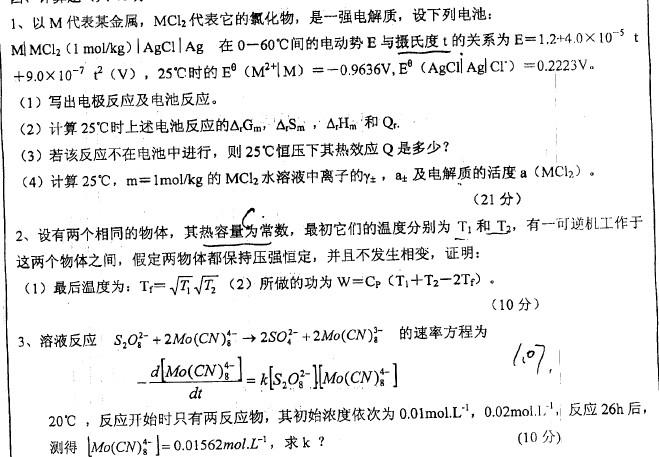 1、以 M 代表某金属，MCl₂代表它的氯化物，是一强电解质，设下列电池：
M|MCl₂（1 mol/kg）| AgCl | Ag 在 0—60℃间的电动势 E 与摄氏度 t 的关系为 E＝1.2+4.0×10⁻⁵ t
+9.0×10⁻⁷ t²（V），25℃时的 Eᶿ（M²⁺| M）＝－0.9636V, Eᶿ（AgCl| Ag| Cl⁻）＝0.2223V。
（1）写出电极反应及电池反应。
（2）计算 25℃时上述电池反应的ΔᵣGₘ，ΔᵣSₘ，ΔᵣHₘ 和 Qᵣ.
（3）若该反应不在电池中进行，则 25℃恒压下其热效应 Q 是多少？
（4）计算 25℃，m＝1mol/kg 的 MCl₂ 水溶液中离子的γ±，a± 及电解质的活度 a（MCl₂）。
（21 分）
2、设有两个相同的物体，其热容量为常数，最初它们的温度分别为 T₁ 和 T₂，有一可逆机工作于
这两个物体之间，假定两物体都保持压强恒定，并且不发生相变，证明：
（1）最后温度为：T_f＝√T₁√T₂ （2）所做的功为 W＝C_P（T₁＋T₂－2T_f）。
（10 分）
3、溶液反应 S₂O₈²⁻ + 2Mo(CN)₈⁴⁻ → 2SO₄²⁻ + 2Mo(CN)₈³⁻ 的速率方程为
－d[Mo(CN)₈⁴⁻]/dt = k[S₂O₈²⁻][Mo(CN)₈⁴⁻]
20℃，反应开始时只有两反应物，其初始浓度依次为 0.01mol.L⁻¹，0.02mol.L⁻¹，反应 26h 后，
测得 [Mo(CN)₈⁴⁻] = 0.01562mol.L⁻¹，求 k ？ （10 分）